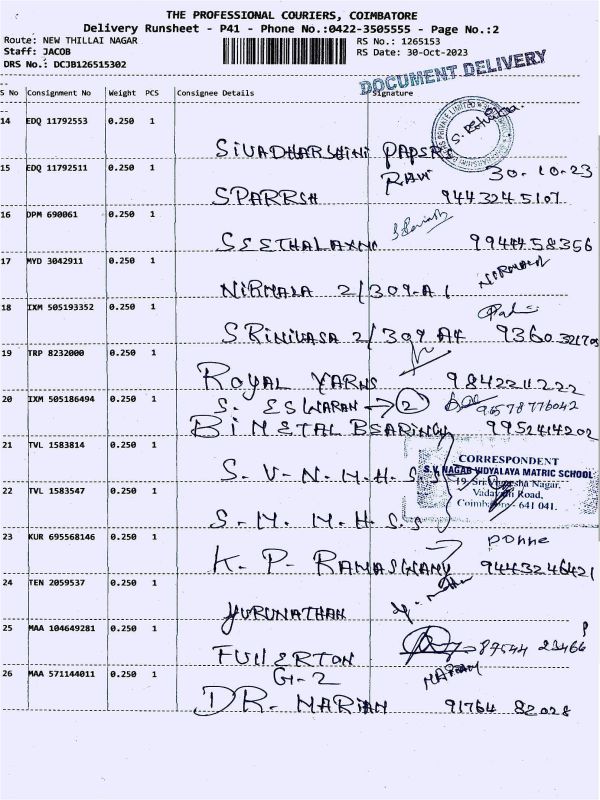 THE PROFESSIONAL COURIERS, COIMBATORE
Delivery Runsheet - P41 - Phone No.:0422-3505555 - Page No.:2
Route: NEW THILLAI NAGAR RS No.: 1265153
Staff: JACOB RS Date: 30-Oct-2023
DRS No.: DCJB126515302
DOCUMENT DELIVERY
S No Consignment No Weight PCS Consignee Details Signature
14 EDQ 11792553 0.250 1
SIVADHARSHINI PAPERS
15 EDQ 11792511 0.250 1 RAVI 30.10.23
SPARRSH 9443245107
16 DPM 690061 0.250 1
SEETHALAXMI 9944458356
17 MYD 3042911 0.250 1 NIRMALA
NIRMALA 2/309-A1
18 IXM 505193352 0.250 1
SRINIVASA 2/309 A4 9360321705
19 TRP 8232000 0.250 1
ROYAL YARNS 9842211222
20 IXM 505186494 0.250 1 S. ESWARAN → 2 9578776042
BIMETAL BEARING 9952414202
21 TVL 1583814 0.250 1
CORRESPONDENT
S.V.NAGAR VIDYALAYA MATRIC SCHOOL
S.V.N.M.H.S.S
Nagar,
22 TVL 1583547 0.250 1
Road,
Coimbatore - 641 041.
S.M.M.H.S.S
23 KUR 695568146 0.250 1
K.P. RAMASWAMY 9443246421
24 TEN 2059537 0.250 1
GURUNATHAN
25 MAA 104649281 0.250 1
FULLERTON 87544 23466
26 MAA 571144011 0.250 1 G-2 MARIAM
DR. MARIAM 91764 82028